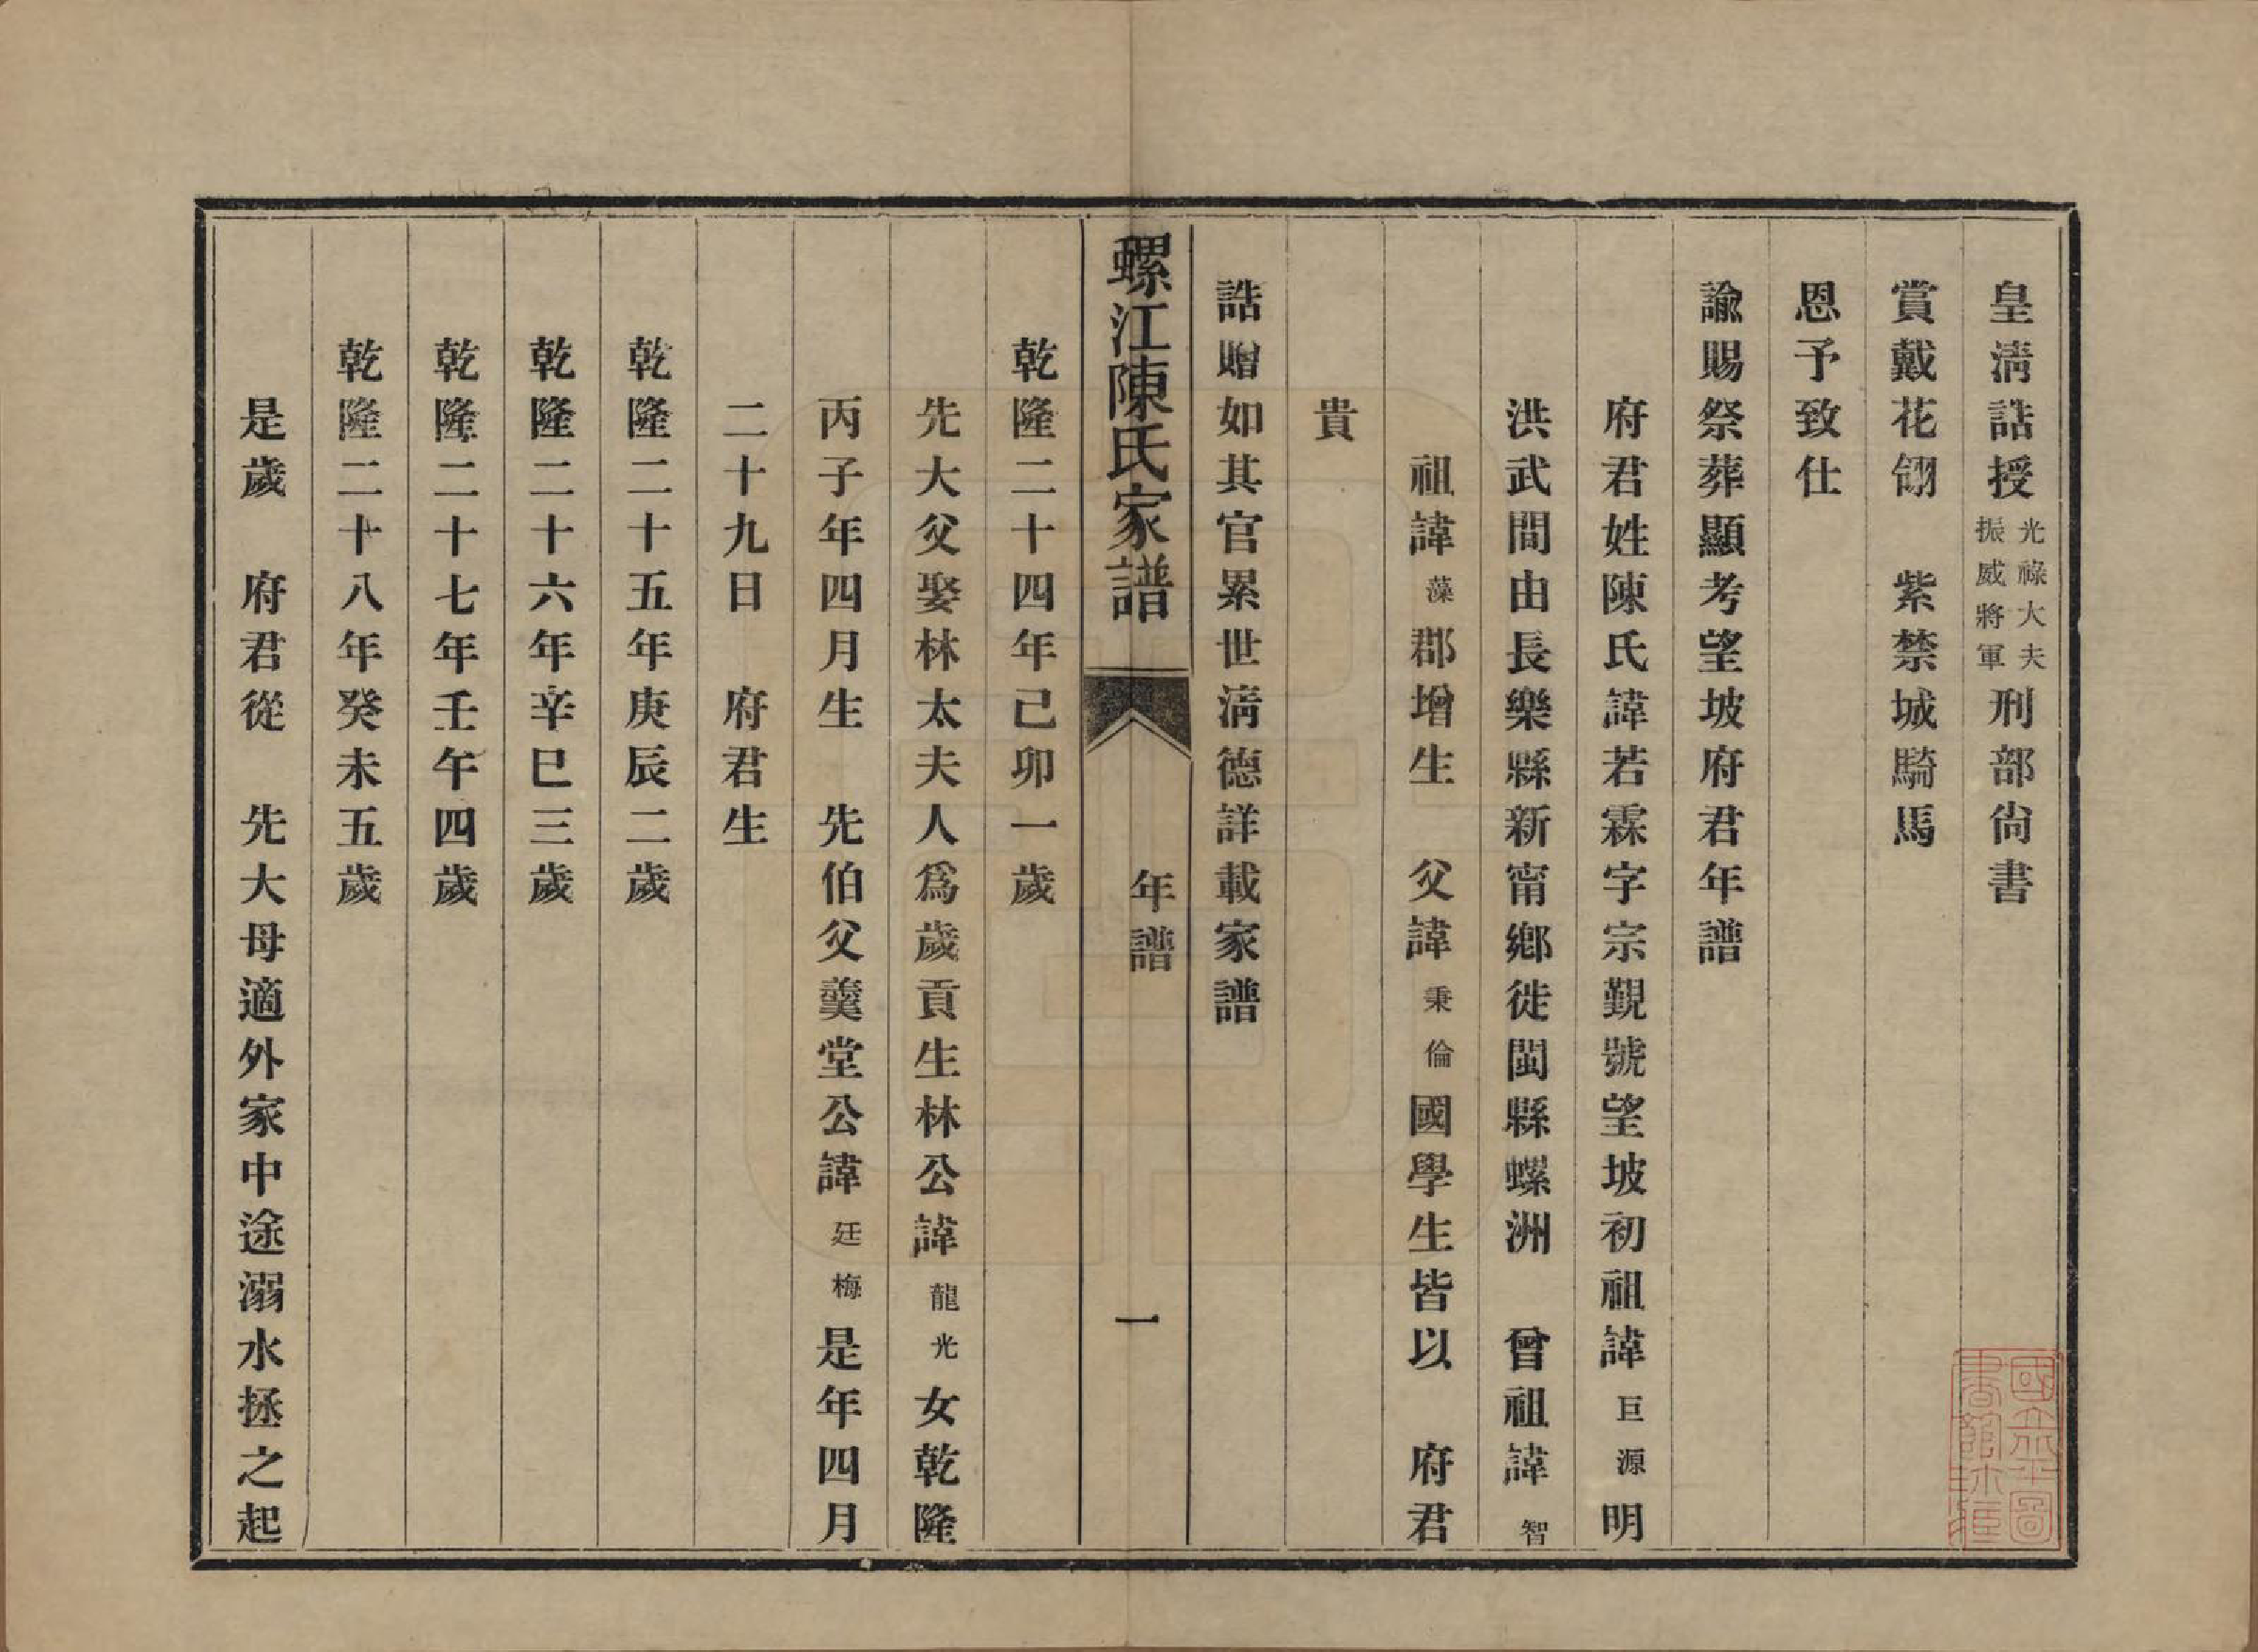 皇淸誥授光祿大夫振威將軍刑部尙書
賞戴花翎　紫禁城騎馬
恩予致仕
諭賜祭葬顯考望坡府君年譜
府君姓陳氏諱若霖字宗覲號望坡初祖諱巨源明
洪武間由長樂縣新甯鄕徙閩縣螺洲　曾祖諱智
祖諱藻郡增生　父諱秉倫國學生皆以　府君
貴
誥贈如其官累世淸德詳載家譜
螺江陳氏家譜　年譜　一
乾隆二十四年己卯一歲
先大父娶林太夫人爲歲貢生林公諱龍光女乾隆
丙子年四月生　先伯父羹堂公諱廷梅是年四月
二十九日　府君生
乾隆二十五年庚辰二歲
乾隆二十六年辛巳三歲
乾隆二十七年壬午四歲
乾隆二十八年癸未五歲
是歲　府君從　先大母適外家中途溺水拯之起
國立北平圖書館收藏